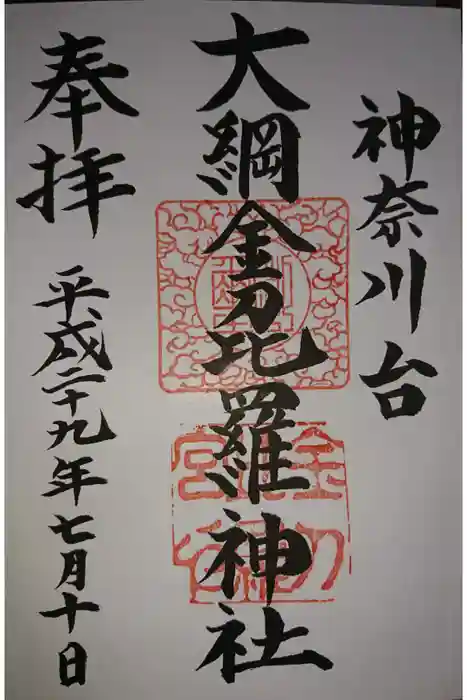 神奈川台
大綱金刀比羅神社
奉拝
平成二十九年七月十日